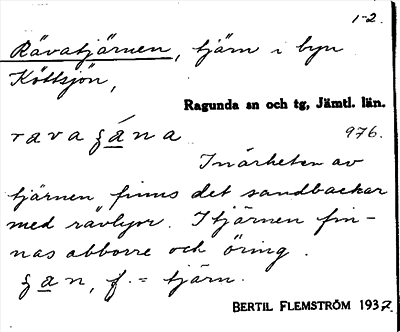 1-2.
Rävatjärnen, tjärn i byn
Köttsjön,
Ragunda sn och tg, Jämtl. län.
976.
I närheten av
tjärnen finns det sandbackar
med rävlyor. I tjärnen fin-
nas abborre och öring.
f. = tjärn.
BERTIL FLEMSTRÖM 1937.